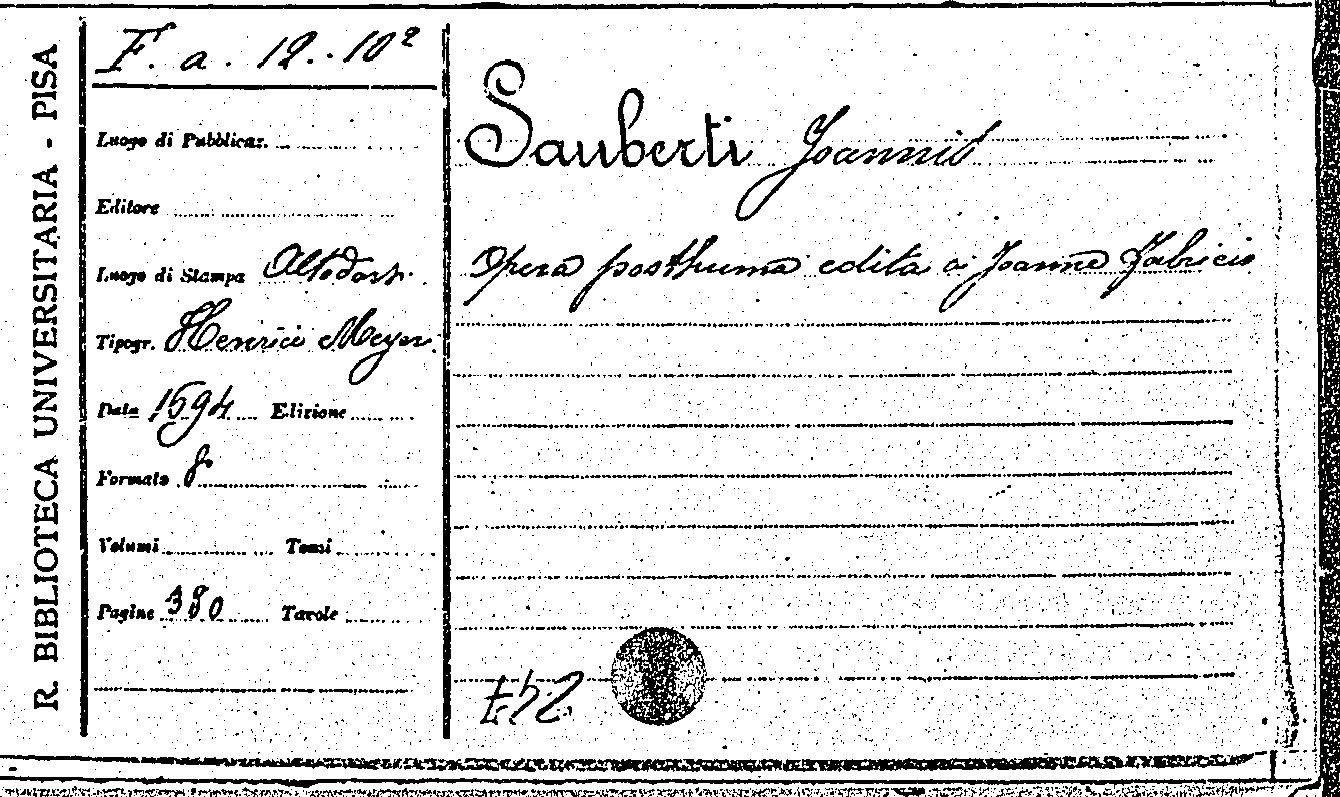 R. BIBLIOTECA UNIVERSITARIA - PISA
F. a. 12..10²
Luogo di Pubblicaz.
Editore
Luogo di Stampa Altdorf.
Tipogr. Henrici Meyer.
Data 1694 Edizione
Formato 8
Volumi Tomi
Pagine 380 Tavole
Sauberti Joannis
Opera posthuma edita a Joanne Fabricio